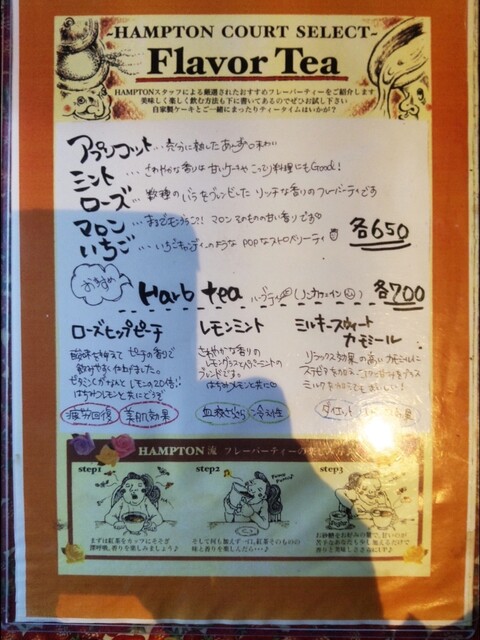 -HAMPTON COURT SELECT-
Flavor Tea
HAMPTONスタッフによる厳選されたおすすめフレーバーティーをご紹介します
美味しく楽しく飲む方法も下に書いてあるのでぜひお試し下さい
自家製ケーキとご一緒にまったりティータイムはいかが？
アプリコット…充分に熟したあま〜い味わい
ミント…さわやかな香りは甘いケーキやこってり料理にもGood!
ローズ…数種のバラをブレンドしたリッチな香りのフレーバーティです
マロン…まるでモンブラン!! マロンそのものの甘い香りです
いちご…いちごキャンディのような POPなストロベリーティ
各650
おすすめ
Harb tea ハーブティ (ノンカフェイン) 各700
ローズヒップピーチ
酸味を押さえて ピーチの香りで
飲みやすく仕上げました。
ビタミンCがなんとレモンの20倍!!
はちみつレモンと共にどうぞ
疲労回復 美肌効果
レモンミント
さわやかな香りの
レモングラスとペパーミントの
ブレンドです。
はちみつレモンと共に
血液さらさら 冷え性
ミルキースウィート
カモミール
リラックス効果の高いカモミールに
ダイエット
HAMPTON流 フレーバーティーの楽しみ方
step1
step2
step3
まずは紅茶をカップにそそぎ
深呼吸、香りを楽しみましょう♪
そして何も加えず一口、紅茶そのものの
味と香りを楽しんだら・・・♪
お砂糖をお好みの量で、甘いのが
苦手なあなたも少し加えるだけで